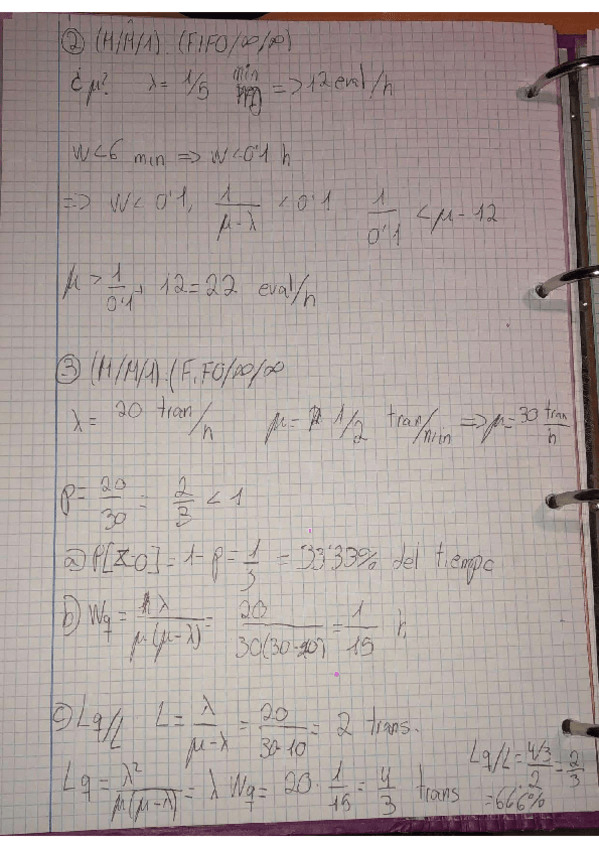 ② (M/M/1).(FIFO/∞/∞)
¿μ? λ = 1/5 min => 12 eval/h
W<6 min => W<0'1 h
=> W<0'1, 1/(μ-λ) < 0'1 1/0'1 < μ-12
μ > 1/0'1 + 12 = 22 eval/h
③ (M/M/1).(FIFO/∞/∞
λ = 20 tran/h μ = 1/2 tran/min => μ = 30 tran/h
ρ = 20/30 = 2/3 < 1
a) P[X=0] = 1-ρ = 1/3 = 33'33% del tiempo
b) Wq = λ/(μ(μ-λ)) = 20/(30(30-20)) = 1/15 h
c) Lq/L L = λ/(μ-λ) = 20/(30-10) = 2 trans.
Lq = λ²/(μ(μ-λ)) = λ Wq = 20 · 1/15 = 4/3 trans
Lq/L = (4/3)/2 = 2/3
= 66'6%